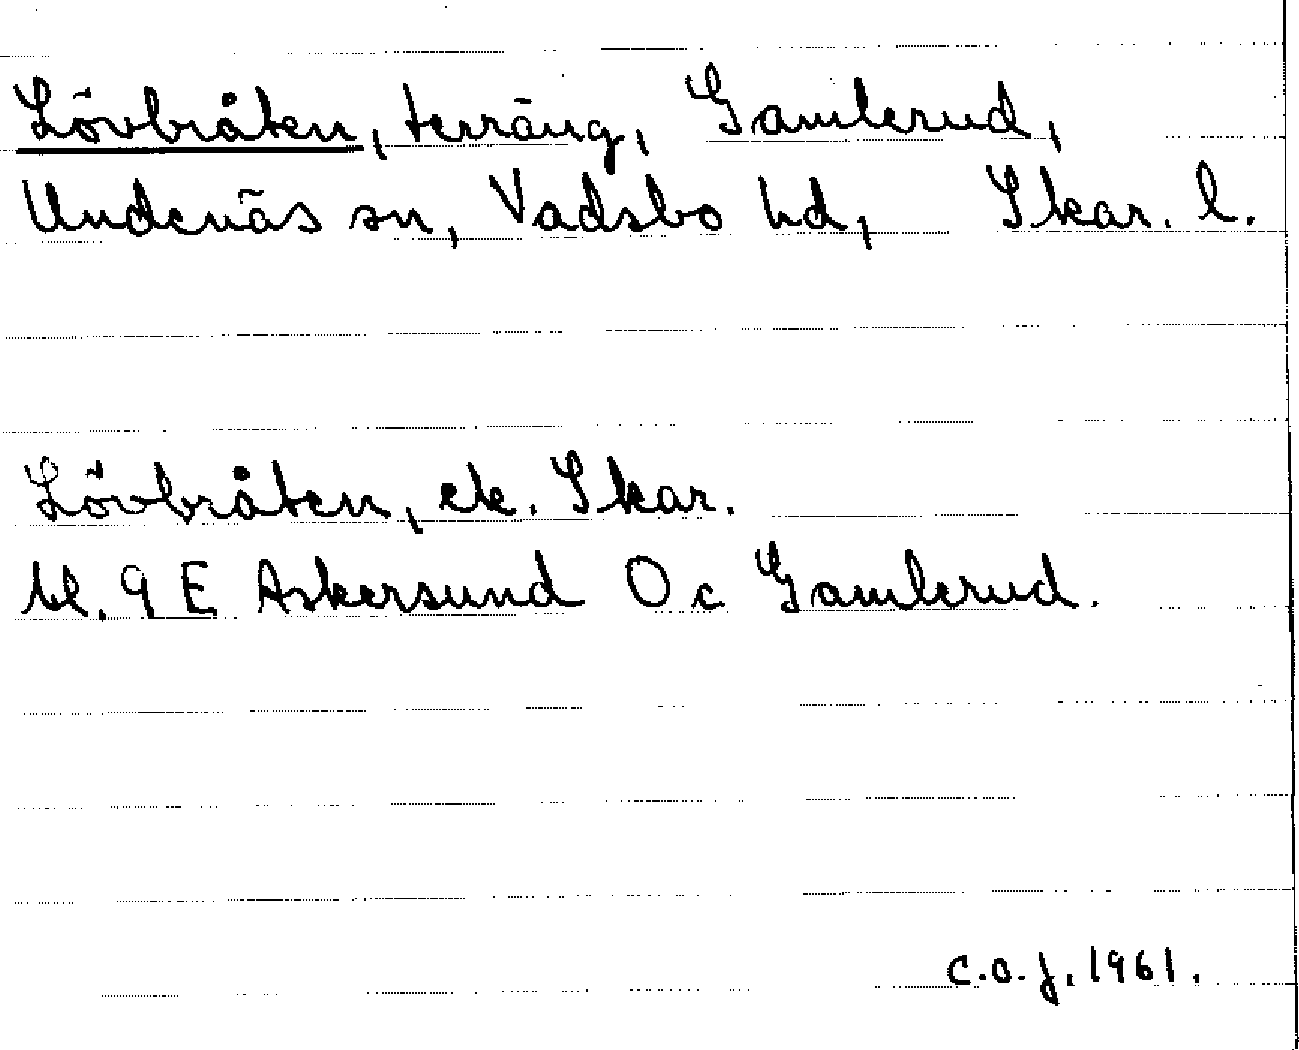 Lövbråten, terräng, Gamlerud,
Undenäs sn, Vadsbo hd, Skar. l.
Lövbråten, ek. Skar.
bl. 9 E Askersund O c Gamlerud.
C.O.J. 1961.